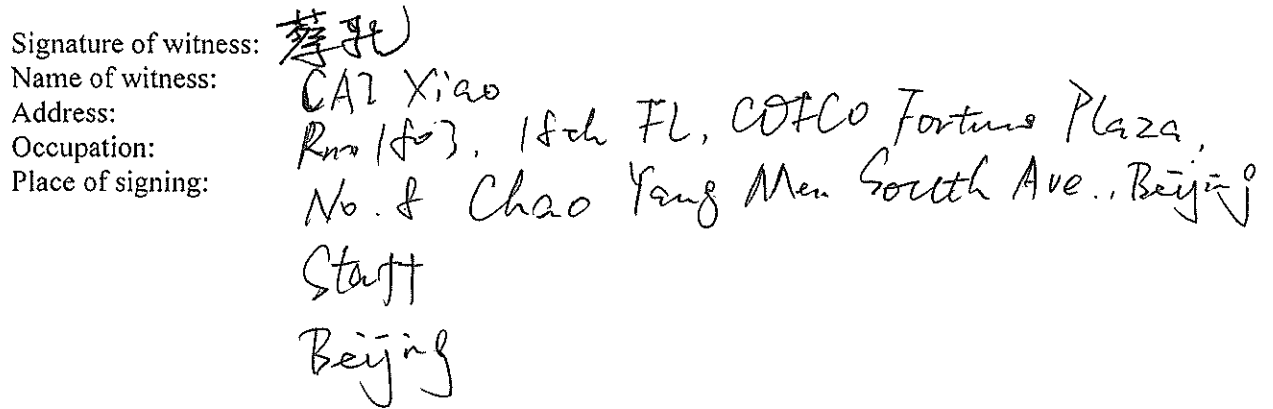 Signature of witness: 蔡
Name of witness: CAI Xiao
Address: Rm 1803, 18th FL, COFCO Fortune Plaza,
No. 8 Chao Yang Men South Ave., Beijing
Occupation: Staff
Place of signing: Beijing